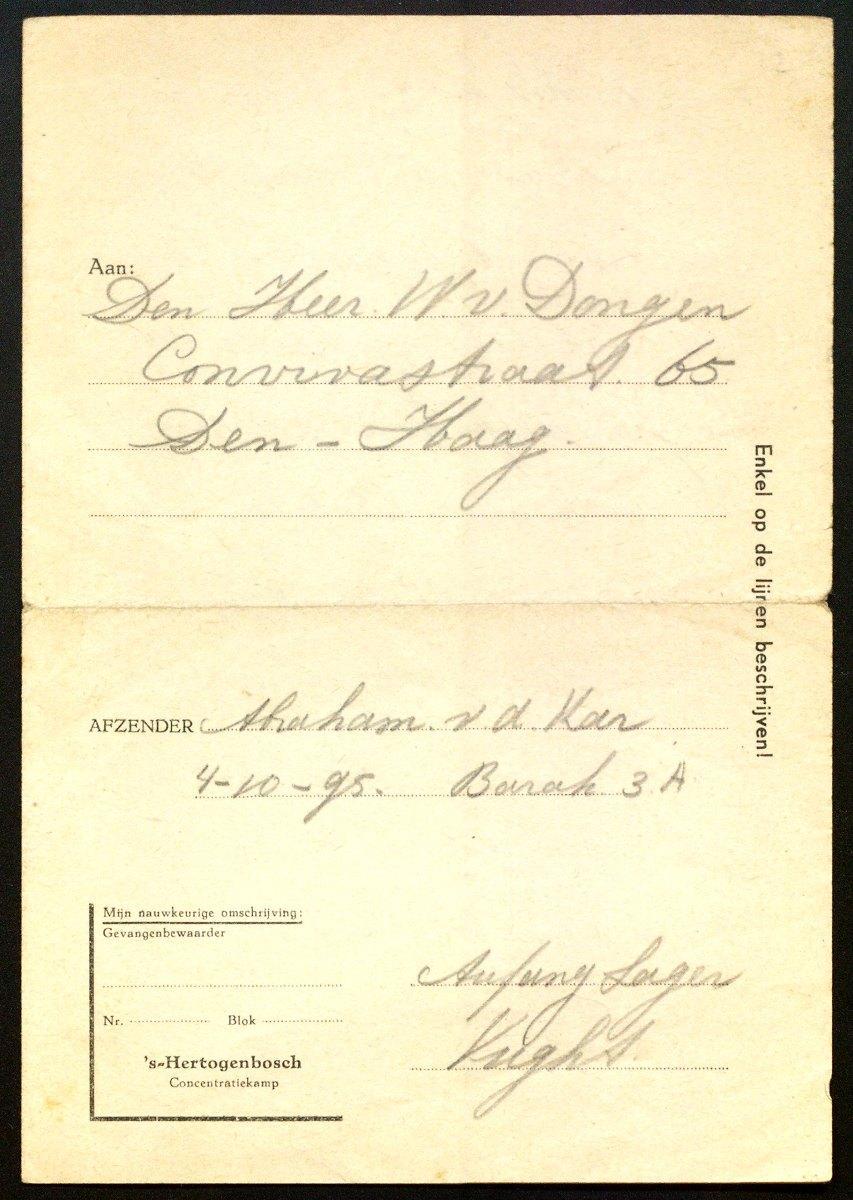 Aan:
Den Heer W. v. Dongen
Convivastraat. 65
Den - Haag.
Enkel op de lijnen beschrijven!
AFZENDER Abraham. v d. Kar
4-10-95. Barak 3 A
Mijn nauwkeurige omschrijving:
Gevangenbewaarder
Nr. Blok
's-Hertogenbosch
Concentratiekamp
Lager
Vught.